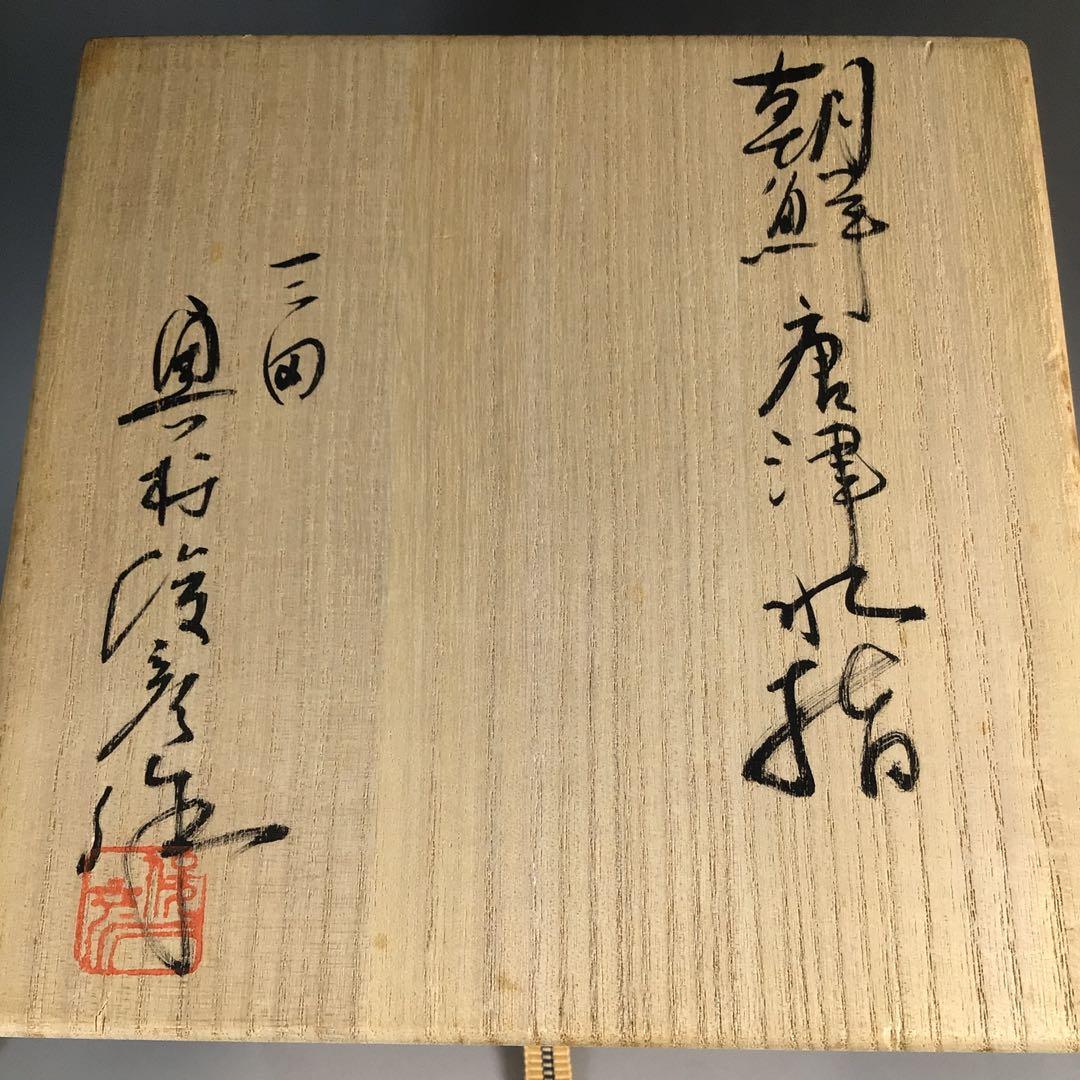 朝鮮唐津水指
三田
奥村俊彦作